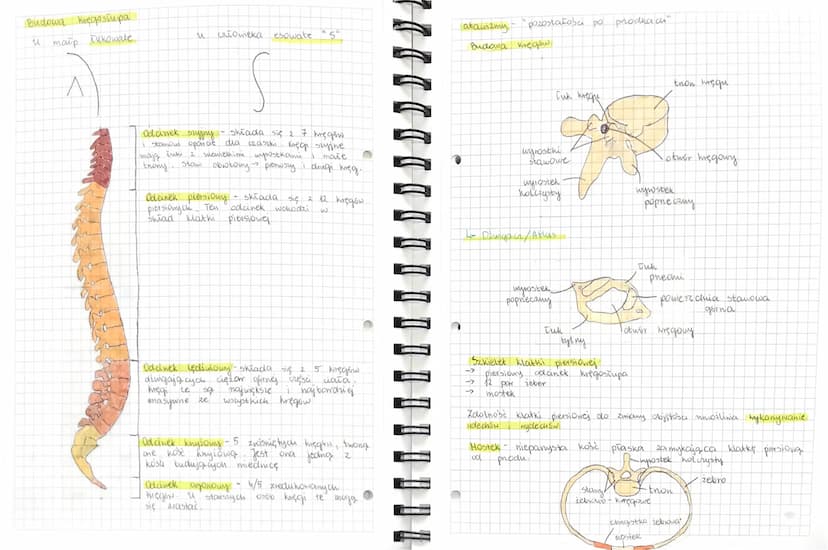 Budowa kręgosłupa
U małp łukowate
U człowieka esowate "S"
Odcinek szyjny - składa się z 7 kręgów
i stanowi oparcie dla czaszki. Kręgi szyjne
mają łuki z niewielkimi wyrostkami i małe
trzony. Staw obrotowy → pierwszy i drugi kręg.
Odcinek piersiowy - składa się z 12 kręgów
piersiowych. Ten odcinek wchodzi w
skład klatki piersiowej
Odcinek lędźwiowy - składa się z 5 kręgów
dźwigających ciężar górnej części ciała.
Kręgi te są największe i najbardziej
masywne ze wszystkich kręgów
Odcinek krzyżowy - 5 zrośniętych kręgów, tworzą
one kość krzyżową. Jest ona jedną z
kości budujących miednicę
Odcinek ogonowy - 4/5 zredukowanych
kręgów. U starszych osób kręgi te mogą
się zrastać.
atawizmy - "pozostałości po przodkach"
Budowa kręgów:
łuk kręgu
trzon kręgu
wyrostki
stawowe
otwór kręgowy
wyrostek
kolczysty
wyrostek
poprzeczny
↳ Dźwigacz/Atlas
łuk
przedni
wyrostek
poprzeczny
powierzchnia stawowa
górna
łuk
tylny
otwór kręgowy
Szkielet klatki piersiowej
→ piersiowy odcinek kręgosłupa
→ 12 par żeber
→ mostek
Zdolność klatki piersiowej do zmiany objętości umożliwia wykonywanie
wdechów i wydechów
Mostek - nieparzysta kość płaska zamykająca klatkę piersiową
od przodu.
wyrostek kolczysty
żebro
stawy
żebrowo-kręgowe
trzon
chrząstka żebrowa
mostek